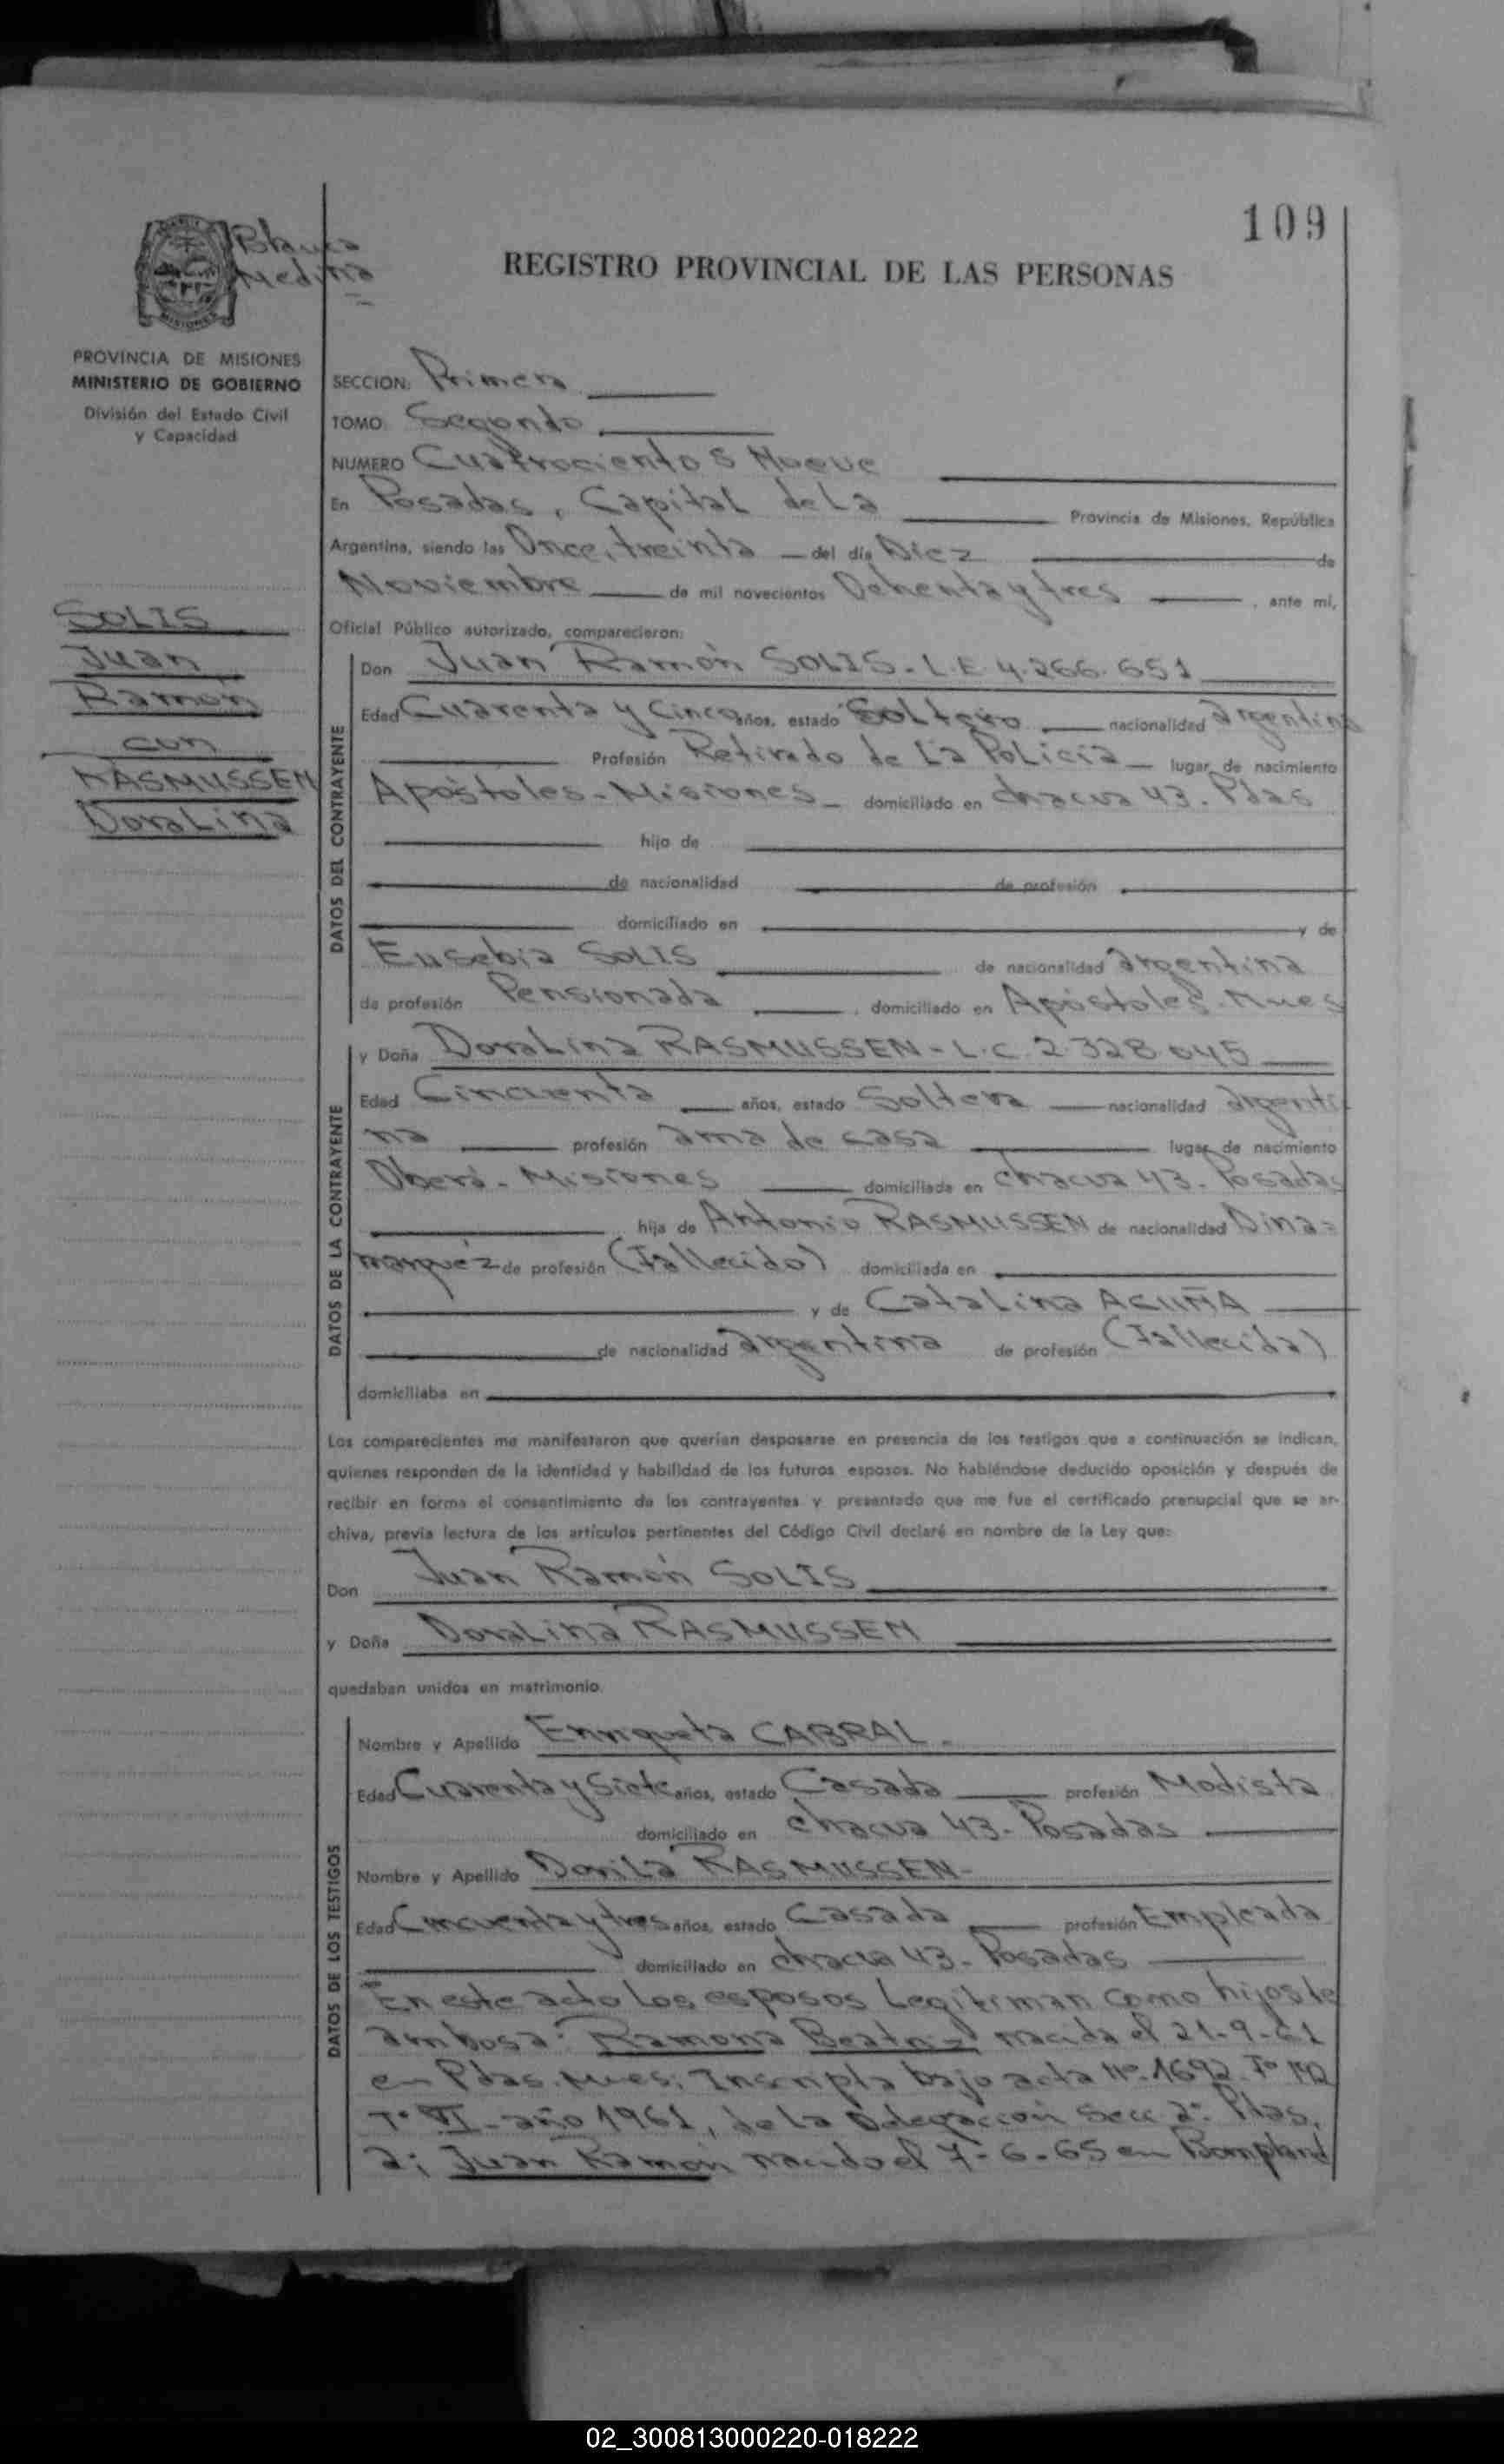 109
Blanca
Medina
REGISTRO PROVINCIAL DE LAS PERSONAS
MISIONES
PROVINCIA DE MISIONES
MINISTERIO DE GOBIERNO
División del Estado Civil
y Capacidad
SECCION: Primera
TOMO Segundo
NUMERO Cuatrocientos Nueve
En Posadas, Capital de La Provincia de Misiones, República
Argentina, siendo las Once, treinta del día Diez de
Noviembre de mil novecientos Ochenta y tres, ante mí,
Oficial Público autorizado, comparecieron:
SOLIS
Juan
Ramón
con
RASMUSSEN
DoraLina
DATOS DEL CONTRAYENTE
Don Juan Ramón SOLIS - L.E 4.266.651
Edad Cuarenta y Cinco años, estado Soltero nacionalidad argentina
Profesión Retirado de La Policia lugar de nacimiento
Apóstoles - Misiones - domiciliado en chacra 43. Pdas
hijo de
de nacionalidad de profesión
domiciliado en y de
Eusebia SOLIS de nacionalidad argentina
de profesión Pensionada, domiciliado en Apóstoles. Mnes
DATOS DE LA CONTRAYENTE
y Doña DoraLina RASMUSSEN - L.C. 2.328.045
Edad Cincuenta años, estado Soltera nacionalidad argenti
na profesión ama de casa lugar de nacimiento
Oberá - Misiones domiciliada en chacra 43. Posadas
hija de Antonio RASMUSSEN de nacionalidad Dina=
marquéz de profesión (Fallecido) domiciliada en
y de CataLina ACUÑA
de nacionalidad argentina de profesión (Fallecida)
domiciliaba en
Los comparecientes me manifestaron que querían desposarse en presencia de los testigos que a continuación se indican,
quienes responden de la identidad y habilidad de los futuros esposos. No habiéndose deducido oposición y después de
recibir en forma el consentimiento de los contrayentes y presentado que me fue el certificado prenupcial que se ar-
chiva, previa lectura de los artículos pertinentes del Código Civil declaré en nombre de la Ley que:
Don Juan Ramón SOLIS
y Doña DoraLina RASMUSSEN
quedaban unidos en matrimonio.
DATOS DE LOS TESTIGOS
Nombre y Apellido Enriqueta CABRAL.
Edad Cuarenta y Siete años, estado Casada profesión Modista
domiciliado en chacra 43 - Posadas
Nombre y Apellido Dorila RASMUSSEN -
Edad Cincuenta y tres años, estado Casada profesión Empleada
domiciliado en chacra 43 - Posadas
En este acto los esposos Legitiman como hijos de
ambos a: Ramona Beatriz nacida el 21-9-61
en Pdas. Mnes; Inscripta bajo acta Nº 1692. Fº
Tº VI - año 1961, de la Delegación Secc 2º Pdas,
a; Juan Ramón nacido el 7-6-65 en Bompland
02_300813000220-018222